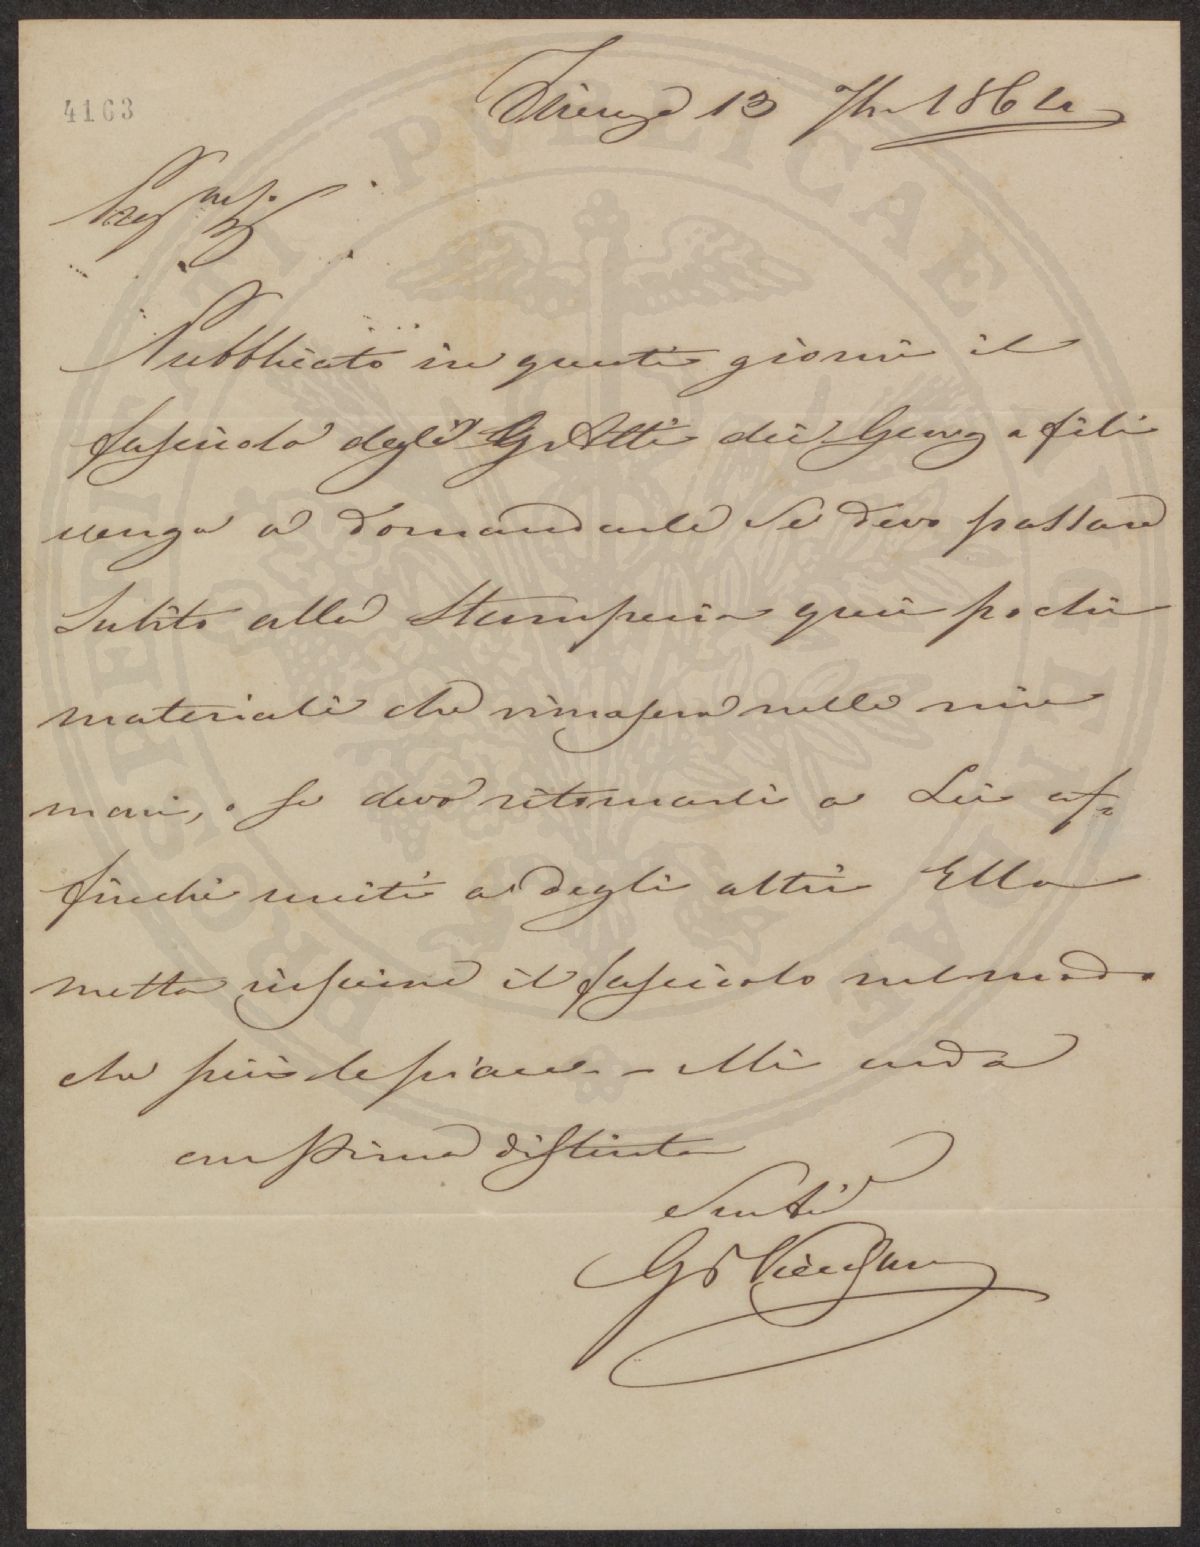 4163
Firenze 13 7bre 1864
Preg.mo Sig.
Pubblicato in questi giorni il
fascicolo degli Atti dei Georgofili
vengo a domandarle se devo passare
subito alla Stamperia quei pochi
materiali che rimasero nelle mie
mani, o se devo ritornarli a Lei af=
finchè uniti a degli altri Ella
metta insieme il fascicolo nel modo
che più le piace. - Mi creda
con stima distinta
G P Vieusseux
PROSPERITATI PUBLICAE AUGENDAE